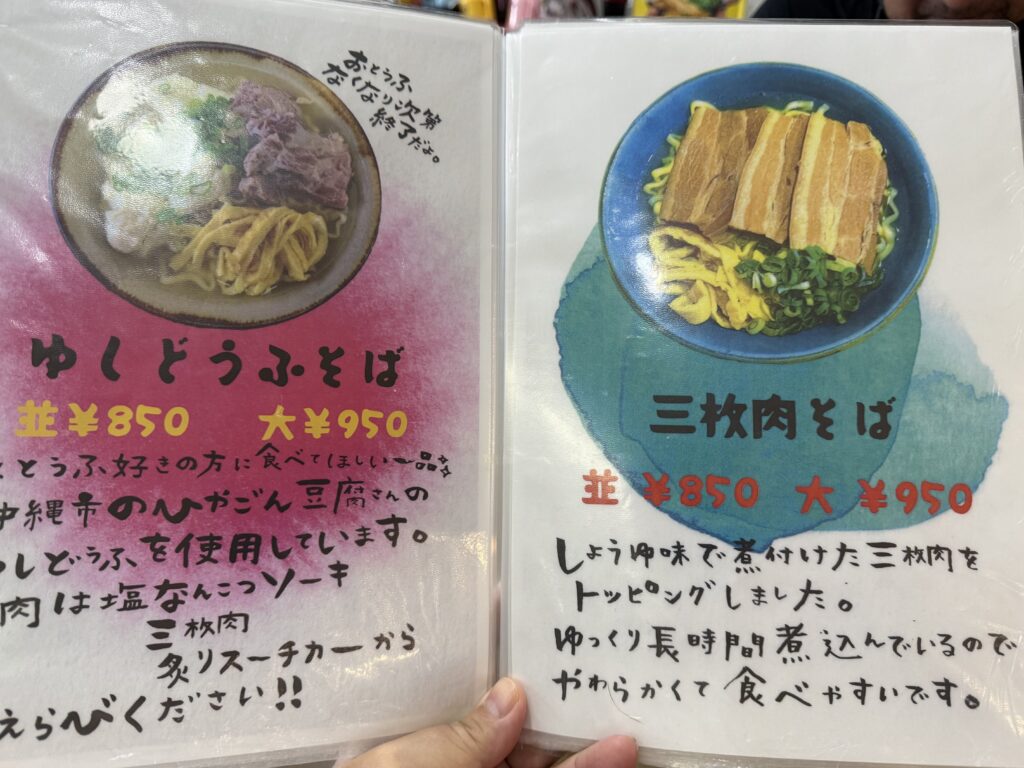 おとうふ
なくなり次第
終了だよ。
ゆしどうふそば
並¥850 大¥950
とうふ好きの方に食べてほしい一品
沖縄市のひやごん豆腐さんの
ゆしどうふを使用しています。
肉は塩なんこつソーキ
三枚肉
炙りスーチカーから
えらびください!!
三枚肉そば
並 ¥850 大 ¥950
しょうゆ味で煮付けた三枚肉を
トッピングしました。
ゆっくり長時間煮込んでいるので
やわらかくて食べやすいです。